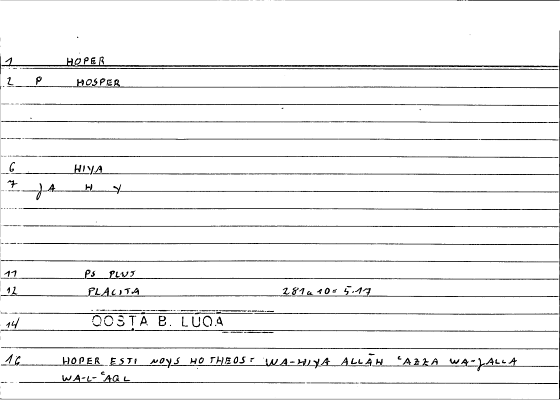 1 HOPER
2 P HOSPER
6 HIYA
7 JA H Y
11 PS PLUT
12 PLACITA 281a10= 5.17
14 QOSṬĀ B. LUQA
16 HOPER ESTI NOYS HO THEOS: WA-HIYA ALLĀH ʿAZZA WA-JALLA
WA-L-ʿAQL